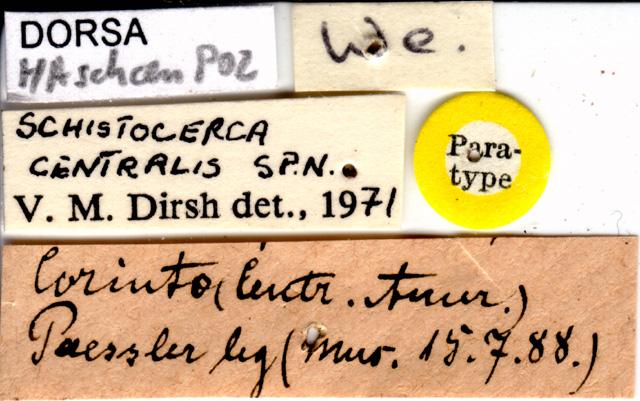 DORSA
P02
SCHISTOCERCA
CENTRALIS SP.N.
V. M. Dirsh det., 1971
Para-
type
Corinto (Centr. Amer.)
Paessler leg (Mus. 15.7.88.)